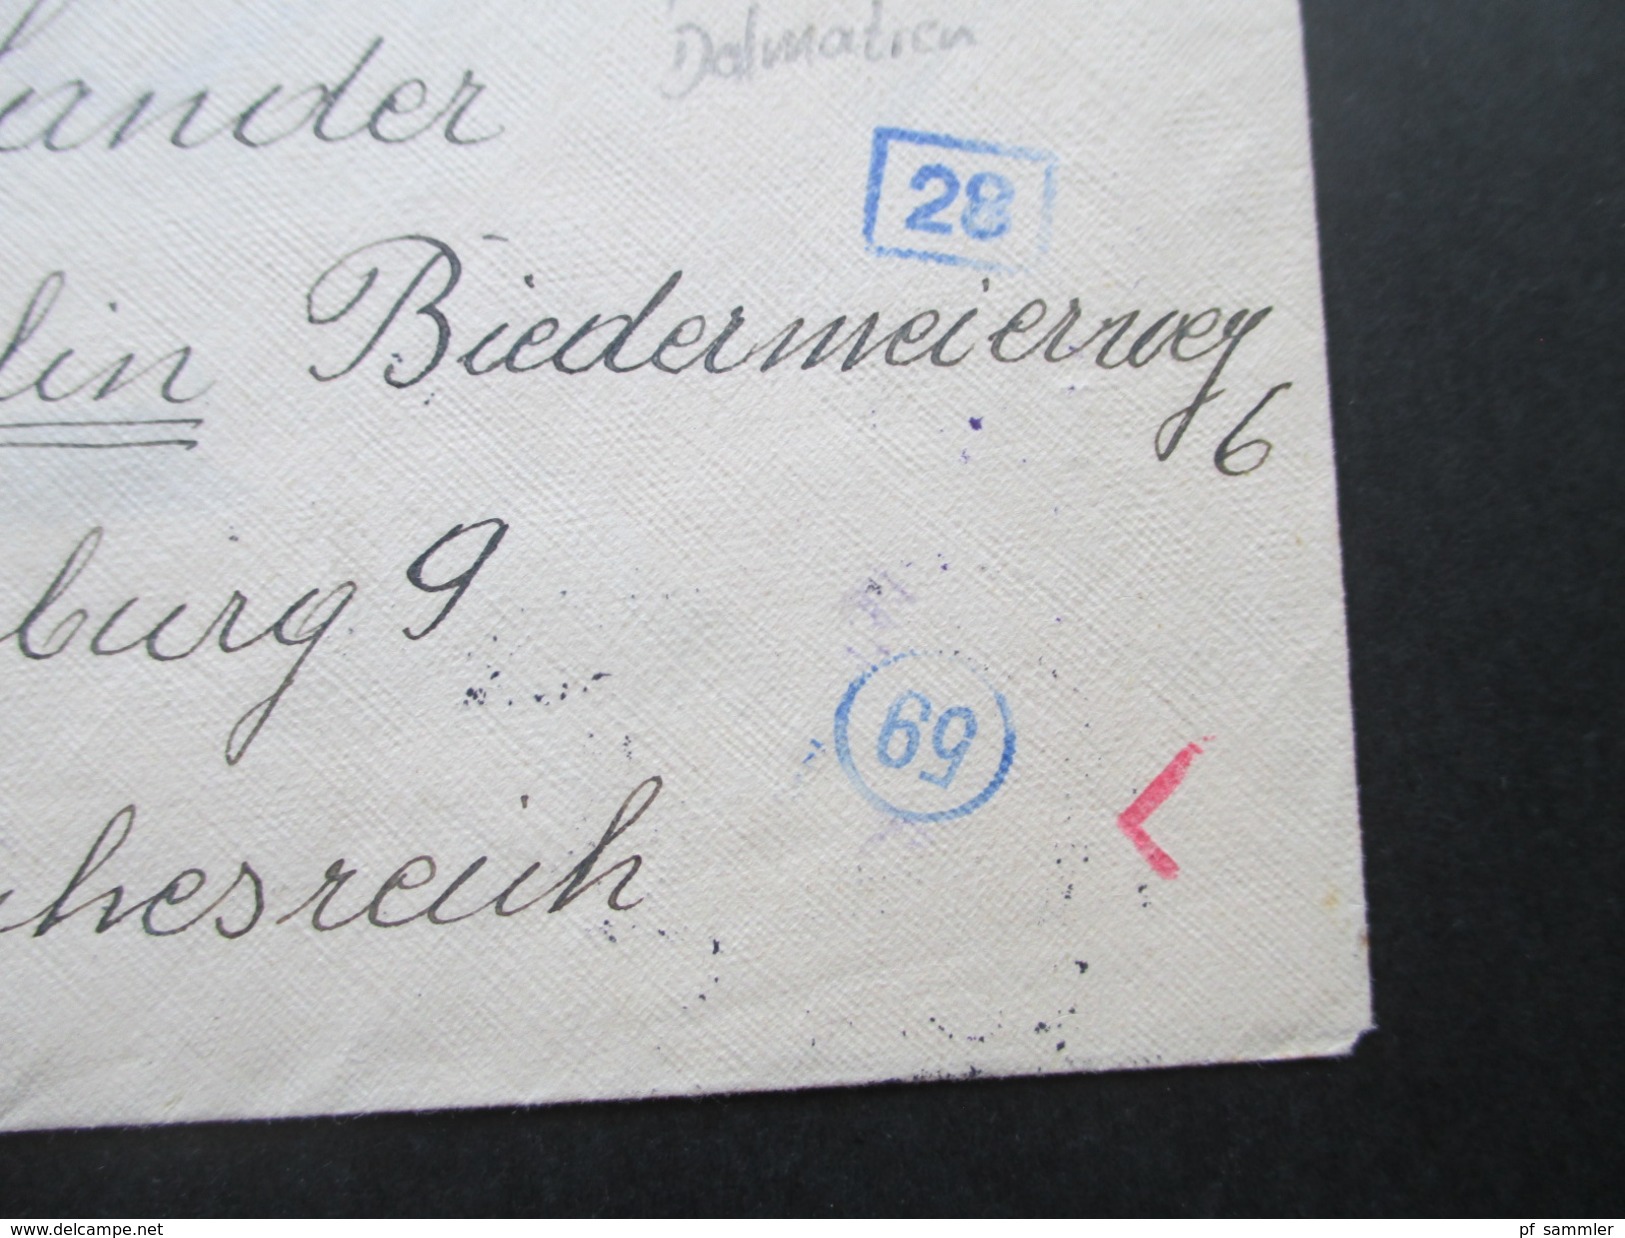 Dalmatien
ander
28
lin Biedermeierweg
6
burg 9
59
chesreich
www.delcampe.net
pf_sammler